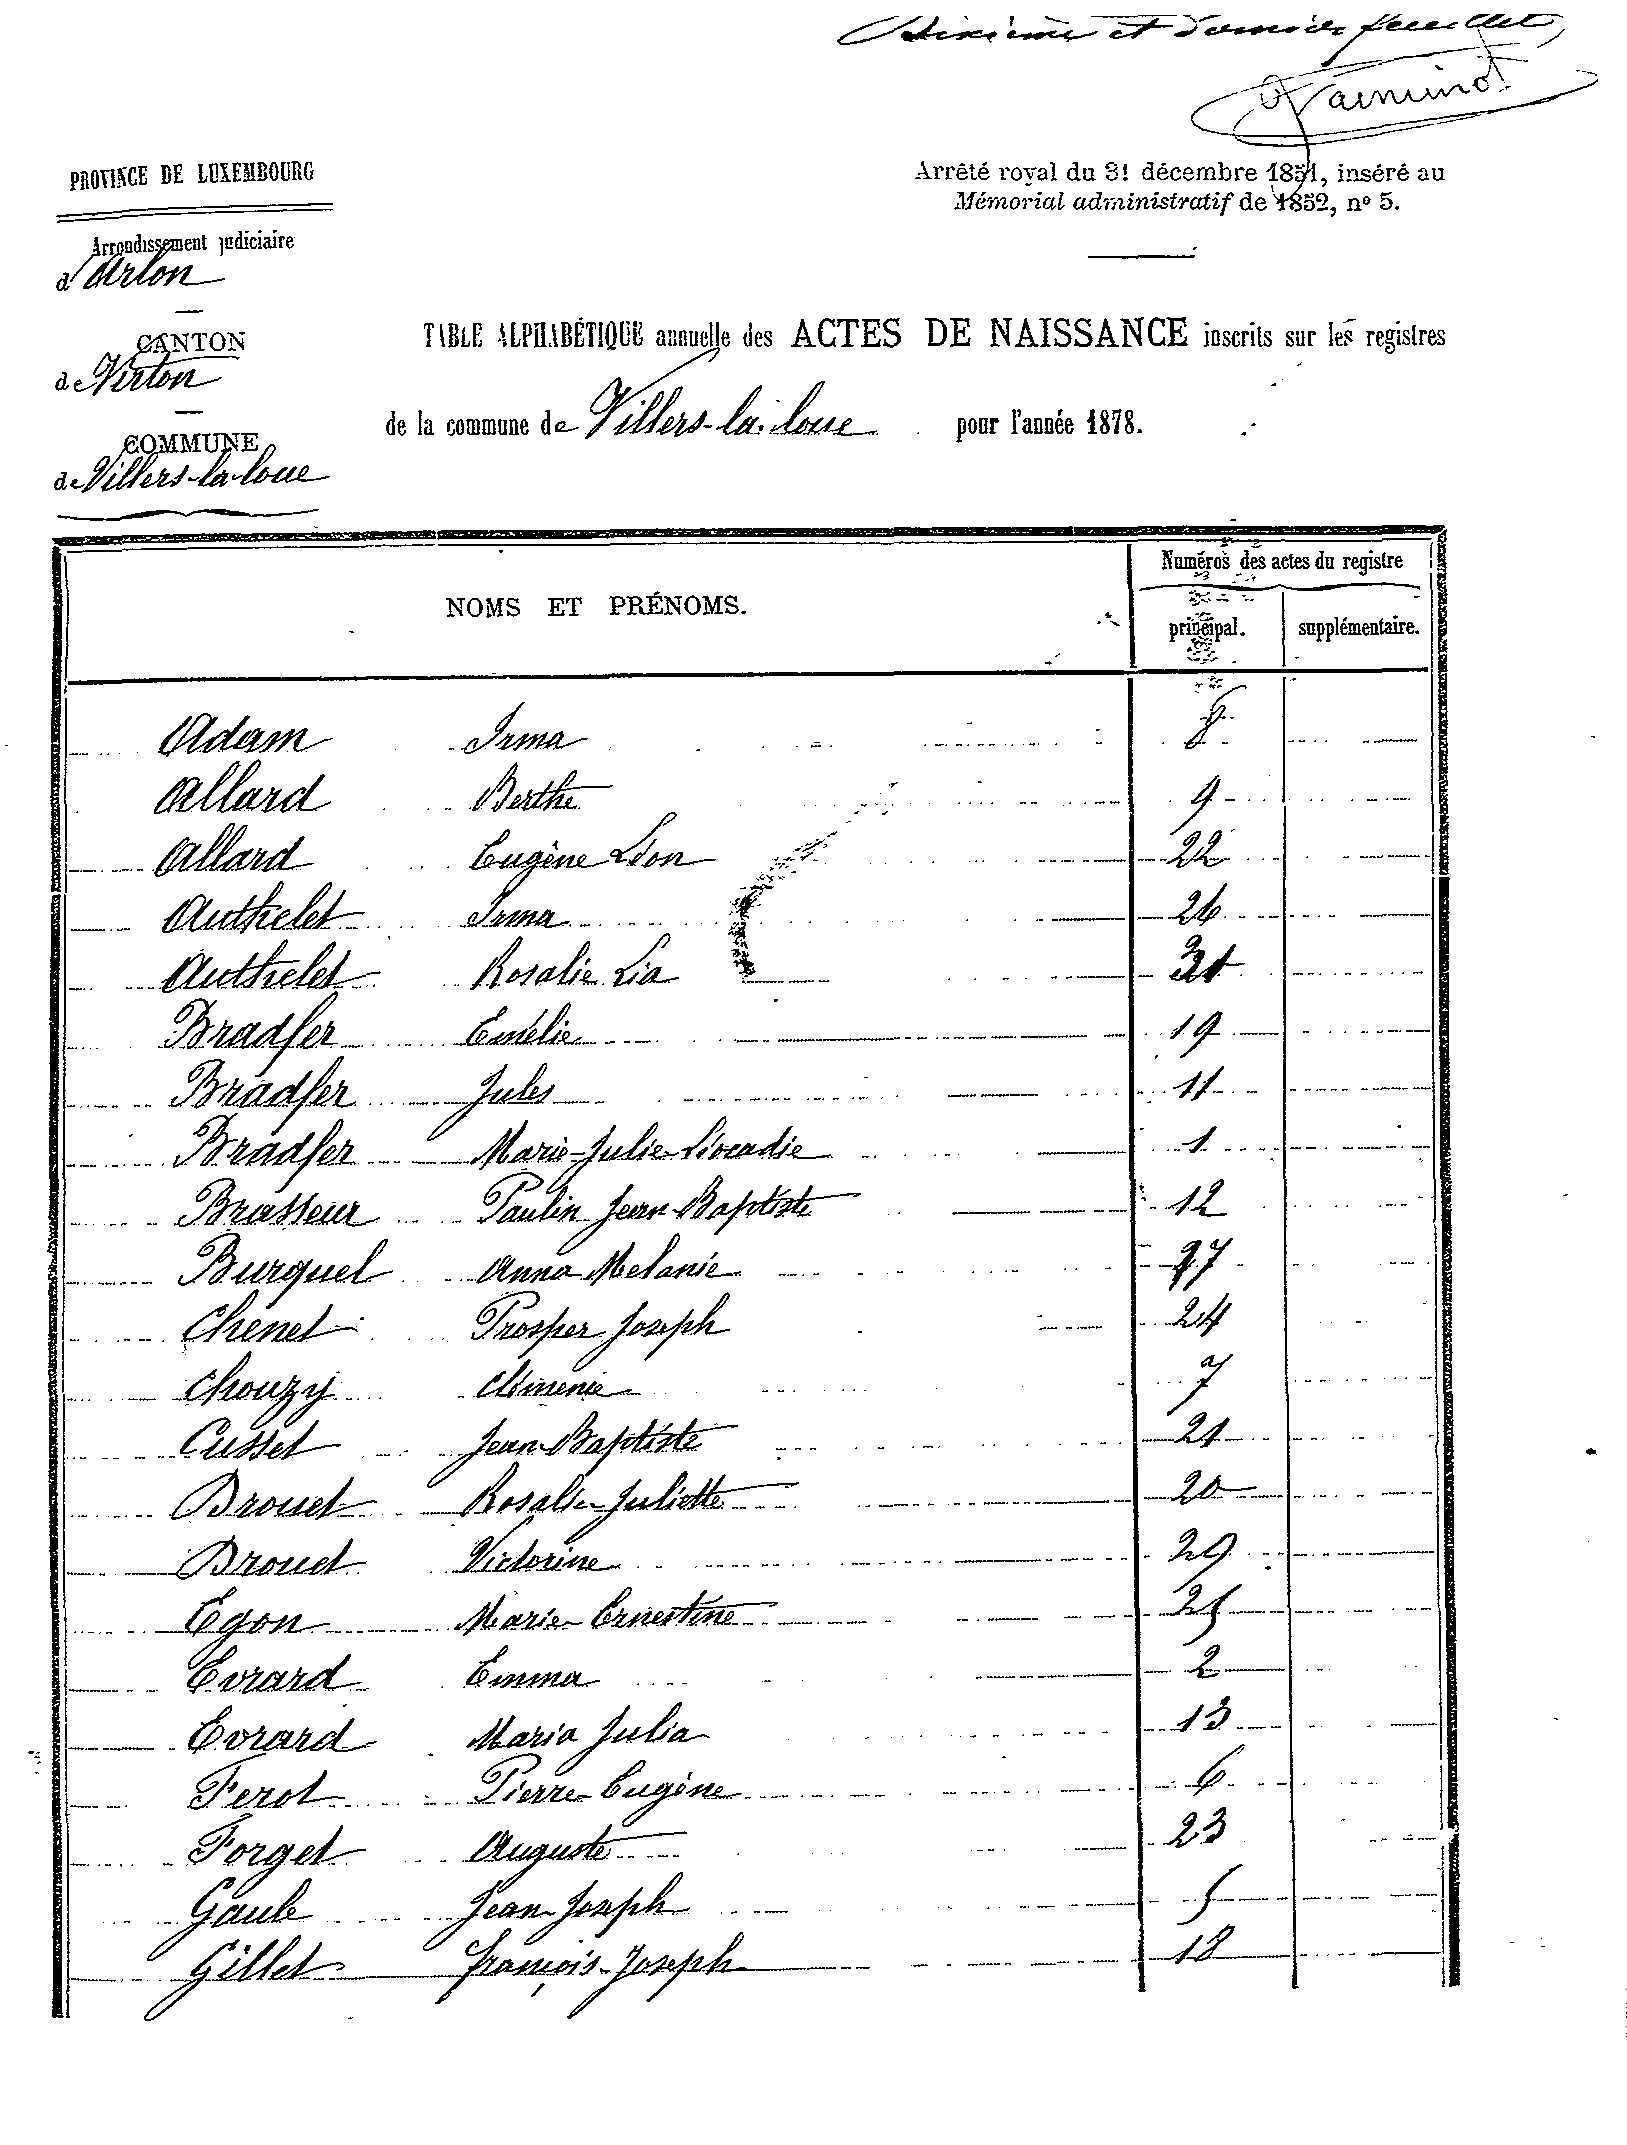 Dixième et dernier feuillet,
PROVINCE DE LUXEMBOURG
Arrêté royal du 31 décembre 1851, inséré au
Mémorial administratif de 1852, nº 5.
Arrondissement judiciaire
d'Arlon
CANTON
de Virton
COMMUNE
de Villers-la-loue
TABLE ALPHABÉTIQUE annuelle des ACTES DE NAISSANCE inscrits sur les registres
de la commune de Villers-la-loue pour l'année 1878.
NOMS ET PRÉNOMS.
Numéros des actes du registre
principal. supplémentaire.
Adam Irma 8
Allard Berthe 9
Allard Eugène Léon 22
Authelet Irma 26
Authelet Rosalie Lia 31
Bradfer Emélie 19
Bradfer Jules 11
Bradfer Marie-Julie-Léocadie 1
Brasseur Paulin Jean-Baptiste 12
Burquel Anna Melanie 27
Chenet Prosper Joseph 24
Chouzy Clémence 7
Cusset Jean-Baptiste 21
Drouet Rosalie-Juliette 20
Drouet Victorine 29
Egon Marie-Ernestine 25
Evrard Emma 2
Evrard Maria Julia 13
Ferot Pierre-Eugène 6
Forget Auguste 23
Gaule Jean-Joseph 5
Gillet François-Joseph 18